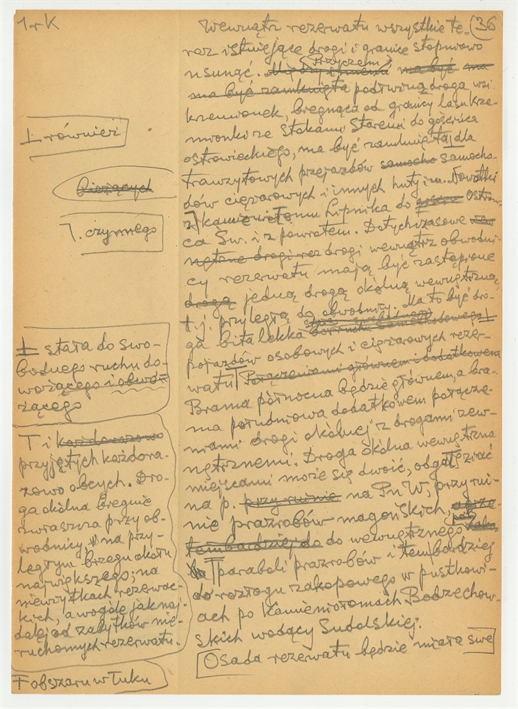 1. rK
36
Wewnątrz rezerwatu wszystkie te-
raz istniejące drogi i granice stopniowo
usunąć. Przyczem
ma być zamknięta podziemna droga wsi
krzemionek, biegnąca od granicy lasu krze-
mionki ze Stokami Staremi do gościńca
ostrowieckiego, ma być zamknięta dla
tranzytowych przejazdów samocho samocho-
dów ciężarowych i innych huty im. Nowotki
z kamieniołomu Lipnika do Ostrow-
ca Św. i z powrotem. Dotychczasowe
drogi wewnątrz obwodni-
cy rezerwatu mają być zastąpione
drogą jedną drogą okólną wewnętrzną
t.j. przyległą do obwodnicy. Ma to być dro-
ga bita lekka
pojazdów osobowych i ciężarowych rezer-
watu T Połączeniami głównemi i dodatkowemi
Brama północna będzie głównem, a bra-
ma południowa dodatkowem połącze-
niami drogi okólnej z drogami zew-
nętrznemi. Droga okólna wewnętrzna
miejscami może się dwoić, odgałęziać
n a p. przy ruinie na Pn W, przy rui-
nie prazrobów magońskich,
tembardziej do do wewnętrznego
T paraboli prazrobów i tembardziej
do roztogu zakopowego w pustkowi-
ach po kamieniołomach Bodzechow-
skich wodący Sudolskiej.
Osada rezerwatu będzie miała swe
⊥ również
bieżących
7. czynnego
⊥ stała do swo-
bodnego ruchu do-
wożącego i obwo-
żącego
T i każdorazowo
przyjętych każdora-
zowo obcych. Dro-
ga okólna biegnie
zwłaszcza przy ob-
wodnicy na przy-
ległym brzegu okołu
największego; na
niewyżytkach rezerwac-
kich, a wogóle jaknaj-
dalej od zabytków nie-
ruchomych rezerwatu.
T obszaru w łuku